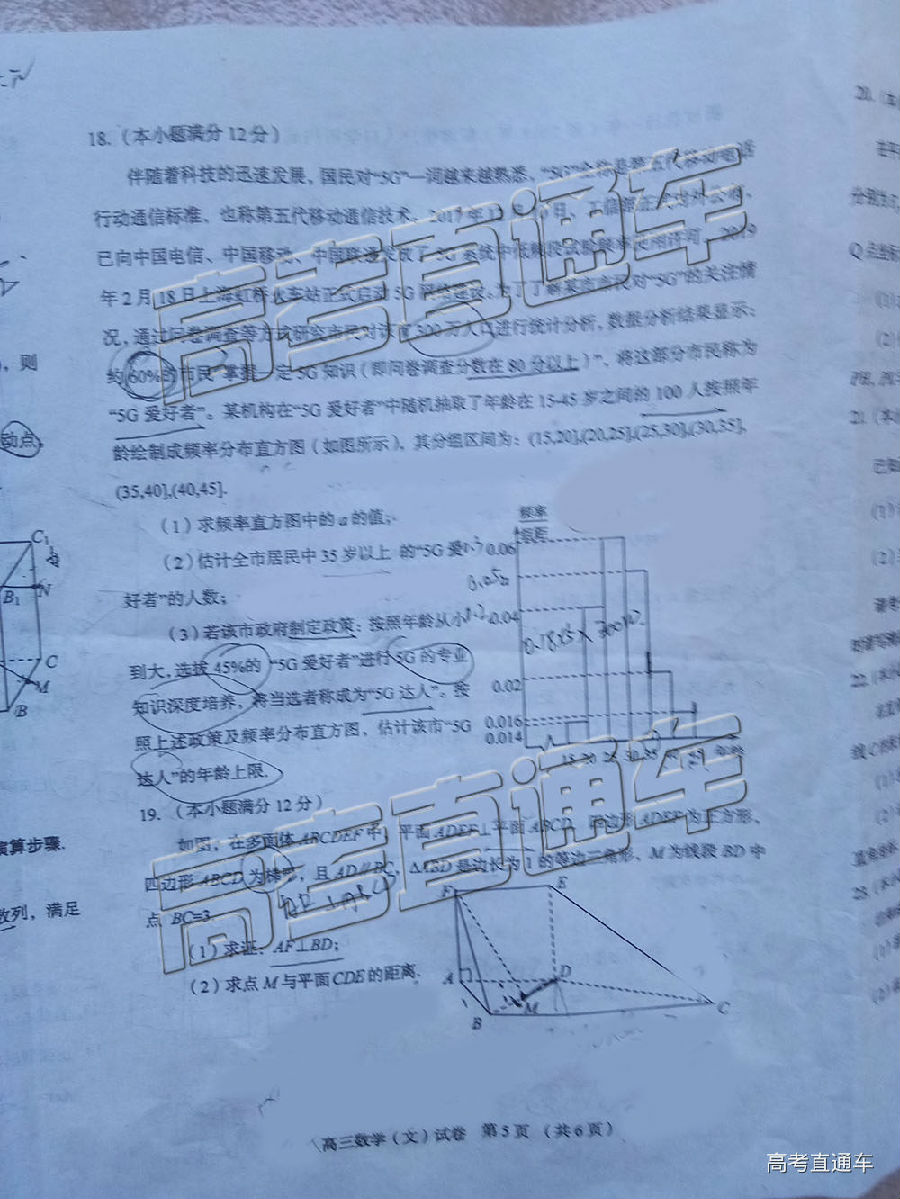 18.（本小题满分 12 分）
伴随着科技的迅速发展，国民对“5G”一词越来越熟悉，“5G”全称是第五代移动电话
行动通信标准，也称第五代移动通信技术。2017 年 1
已向中国电信、中国移动、中国联通发放了 5G 系统中低频段试验频率使用许可。2019
年 2 月 18 日上海虹桥火车站正式启动 5G 网络建设。为了了解某市市民对“5G”的关注情
况，通过问卷调查等方式研究市民对该市 300 万人口进行统计分析，数据分析结果显示：
约 60%的市民“掌握一定 5G 知识（即问卷调查分数在 80 分以上）”，将这部分市民称为
“5G 爱好者”。某机构在“5G 爱好者”中随机抽取了年龄在 15-45 岁之间的 100 人按照年
龄绘制成频率分布直方图（如图所示），其分组区间为：(15,20],(20,25],(25,30],(30,35],
(35,40],(40,45].
（1）求频率直方图中的 a 的值；
（2）估计全市居民中 35 岁以上 的“5G 爱
好者”的人数；
（3）若该市政府制定政策：按照年龄从小
到大，选拔 45%的 “5G 爱好者”进行 5G 的专业
知识深度培养，将当选者称成为“5G 达人”。按
照上述政策及频率分布直方图，估计该市“5G
达人”的年龄上限.
频率
组距
0.06
0.04
0.02
0.016
0.014
15 20 25 30 35
19.（本小题满分 12 分）
如图，在多面体 ABCDEF 中，平面 ADEF⊥平面 ABCD，四边形 ADEF 为正方形，
四边形 ABCD 为梯形，且 AD∥BC，△ABD 是边长为 1 的等边三角形，M 为线段 BD 中
点，BC=3.
（1）求证：AF⊥BD；
（2）求点 M 与平面 CDE 的距离.
F
E
A
D
M
B
C
高三数学（文）试卷 第 5 页 （共 6 页）
，则
动点，
C₁
B₁
N
C
M
B
演算步骤.
数列，满足
20.（本
Q 点坐标
21.（本
（1）
（2）
22.
高考直通车
高考直通车
高考直通车